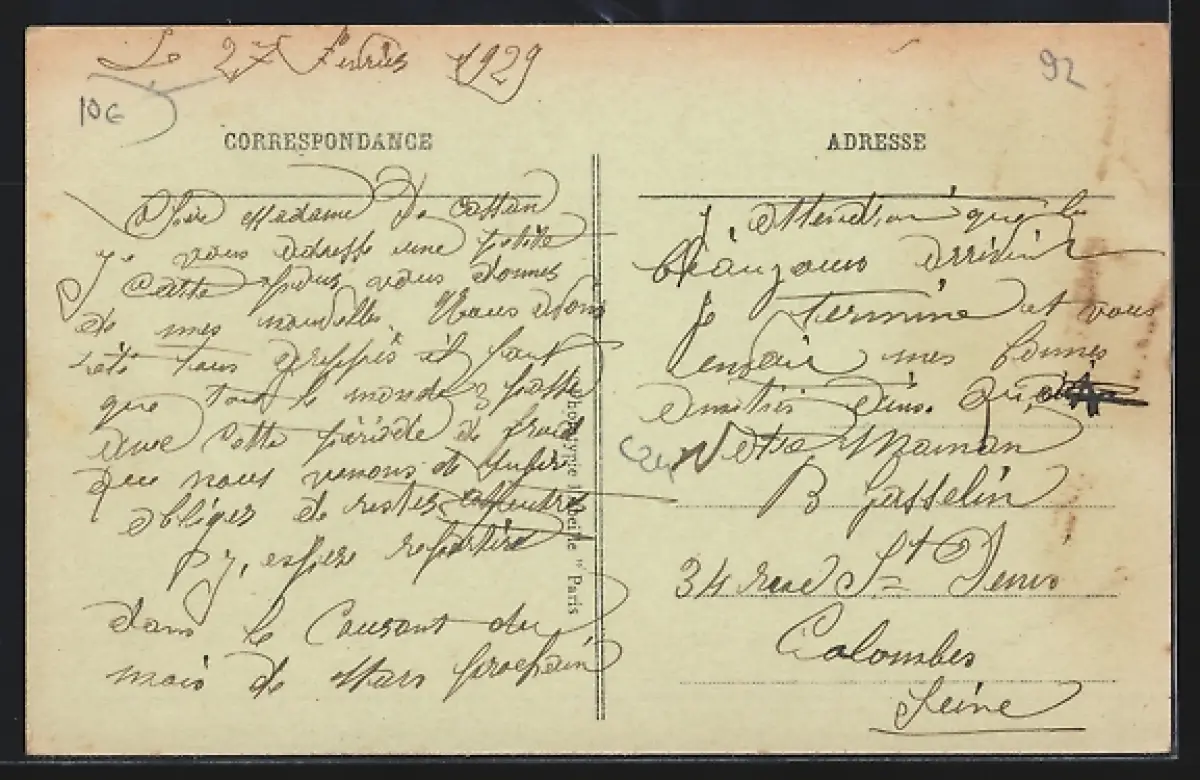 Le 27 Février 1929
10€
92
CORRESPONDANCE
Chère Madame De Cattan
Je vous adresse une petite
Carte pour vous donnes
de mes nouvelles. Nous avons
été tous grippés il faut
que tout le monde y passe
avec cette période de froid
que nous venons de
obliger de restes
j, espère repartire
dans le Courant du
mois de Mars prochain
Phototypie "Abeille" Paris
ADRESSE
j, attendian que les
beaux jours arrivent
Je termine et vous
envoie mes bonnes
amitiés ainsi que
Votre Maman
B Gasselin
34 rue St Denis
Colombes
Seine